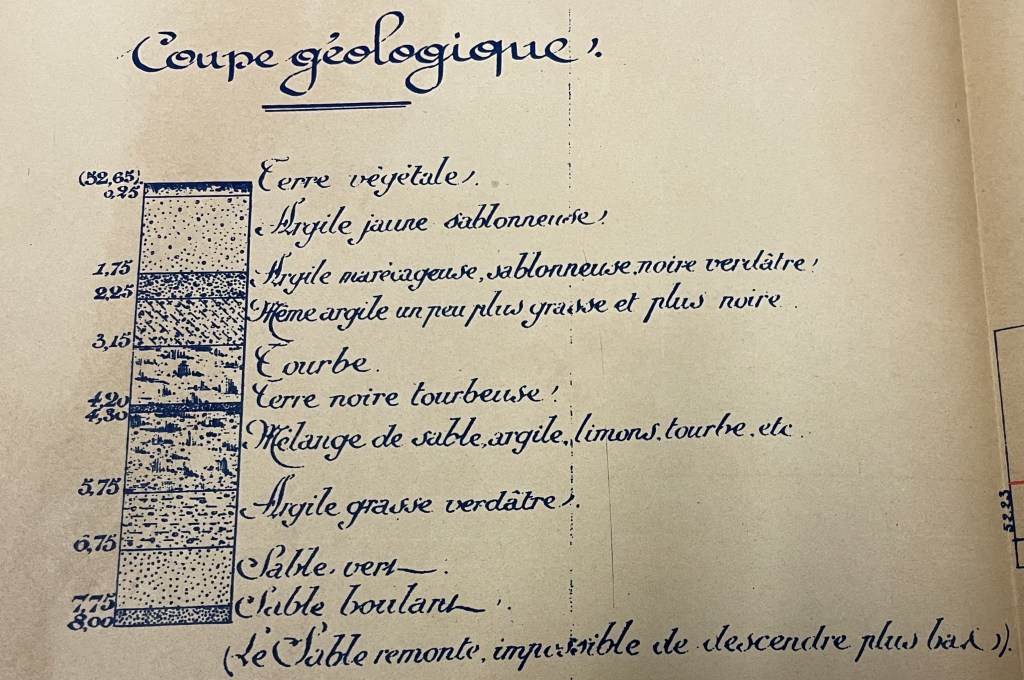 Coupe géologique.
(52,65) Terre végétale.
0,25
Argile jaune sablonneuse.
1,75 Argile marécageuse, sablonneuse, noire verdâtre.
2,25
Même argile un peu plus grasse et plus noire.
3,15
Tourbe.
4,20 Terre noire tourbeuse.
4,30
Mélange de sable, argile, limons, tourbe, etc.
5,75
Argile grasse verdâtre.
6,75
Sable vert.
7,75 Sable boulant.
8,00
(Le Sable remonte, impossible de descendre plus bas).
52.23